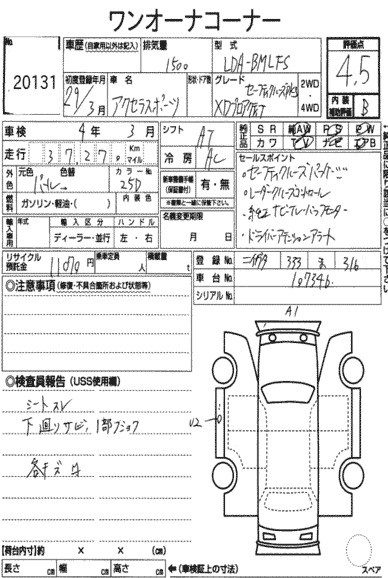 ワンオーナーコーナー
No.
20131
車歴 (自家用以外は記入)
排気量
1500
型式
LDA-BMLFS
評価点
4.5
初度登録年月
29年3月
車名
アクセラスポーツ
形状・ドア数
グレード
XDプロアクティブ
2WD・4WD
内装補助評価
B
車検
4年 3月
シフト
AT
純正品
SR 純AW PS PW
カワ TV ナビ エアB
走行
37,27 Km マイル
冷房
AC
セールスポイント
・セーフティクルーズパッケージ
・レーダークルーズコントロール
・純正ナビ バックモニター
・ドライバーアテンションアラート
外色
元色
色替
カラーNo.
25D
新車整備手帳 (保証書付)
有・無
※実際と一緒に保管下さい。
燃料
ガソリン・軽油・( )
内装色
名義変更期限
月 日
輸入車専用
年式
輸入区分
ハンドル
ディーラー・並行
左・右
リサイクル預託金
円
乗車定員
人
積載量
t
登録No.
333
316
車台No.
107346
シリアルNo.
◎注意事項 (修復・不具合箇所および状態等)
A1
◎検査員報告 (USS使用欄)
シートスレ
下廻りサビ、1部
各キズ
U2
【荷台内寸】約 × × (cm)
長さ cm 幅 cm 高さ cm
←(車検証上の寸法)
スペア